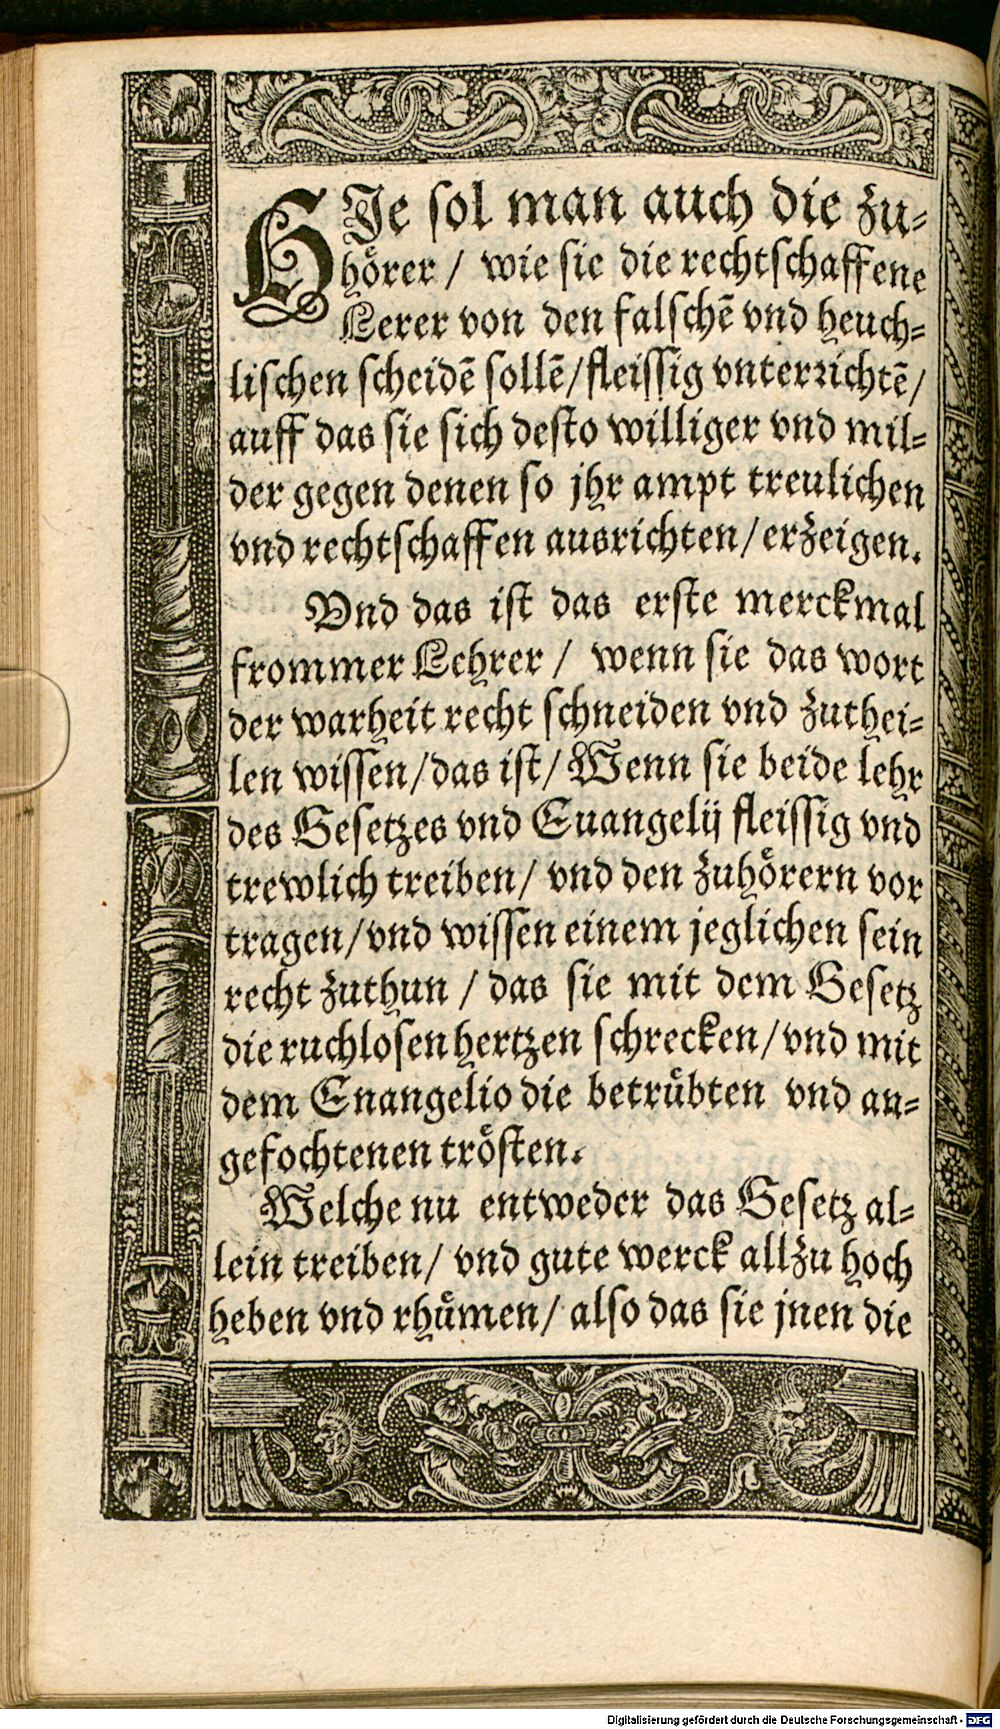 HIe sol man auch die zu-
hörer / wie sie die rechtschaffene
Lerer von den falschē vnd heuch-
lischen scheidē sollē/fleissig vnterrichtē/
auff das sie sich desto williger vnd mil-
der gegen denen so jhr ampt treulichen
vnd rechtschaffen ausrichten/erzeigen.
Vnd das ist das erste merckmal
frommer Lehrer / wenn sie das wort
der warheit recht schneiden vnd zuthei-
len wissen/das ist/Wenn sie beide lehr
des Gesetzes vnd Euangelij fleissig vnd
trewlich treiben/ vnd den zuhörern vor
tragen/vnd wissen einem jeglichen sein
recht zuthun / das sie mit dem Gesetz
die ruchlosen hertzen schrecken/vnd mit
dem Enangelio die betrübten vnd an-
gefochtenen trösten.
Welche nu entweder das Gesetz al-
lein treiben/ vnd gute werck allzu hoch
heben vnd rhümen/ also das sie jnen die
Digitalisierung gefördert durch die Deutsche Forschungsgemeinschaft - DFG